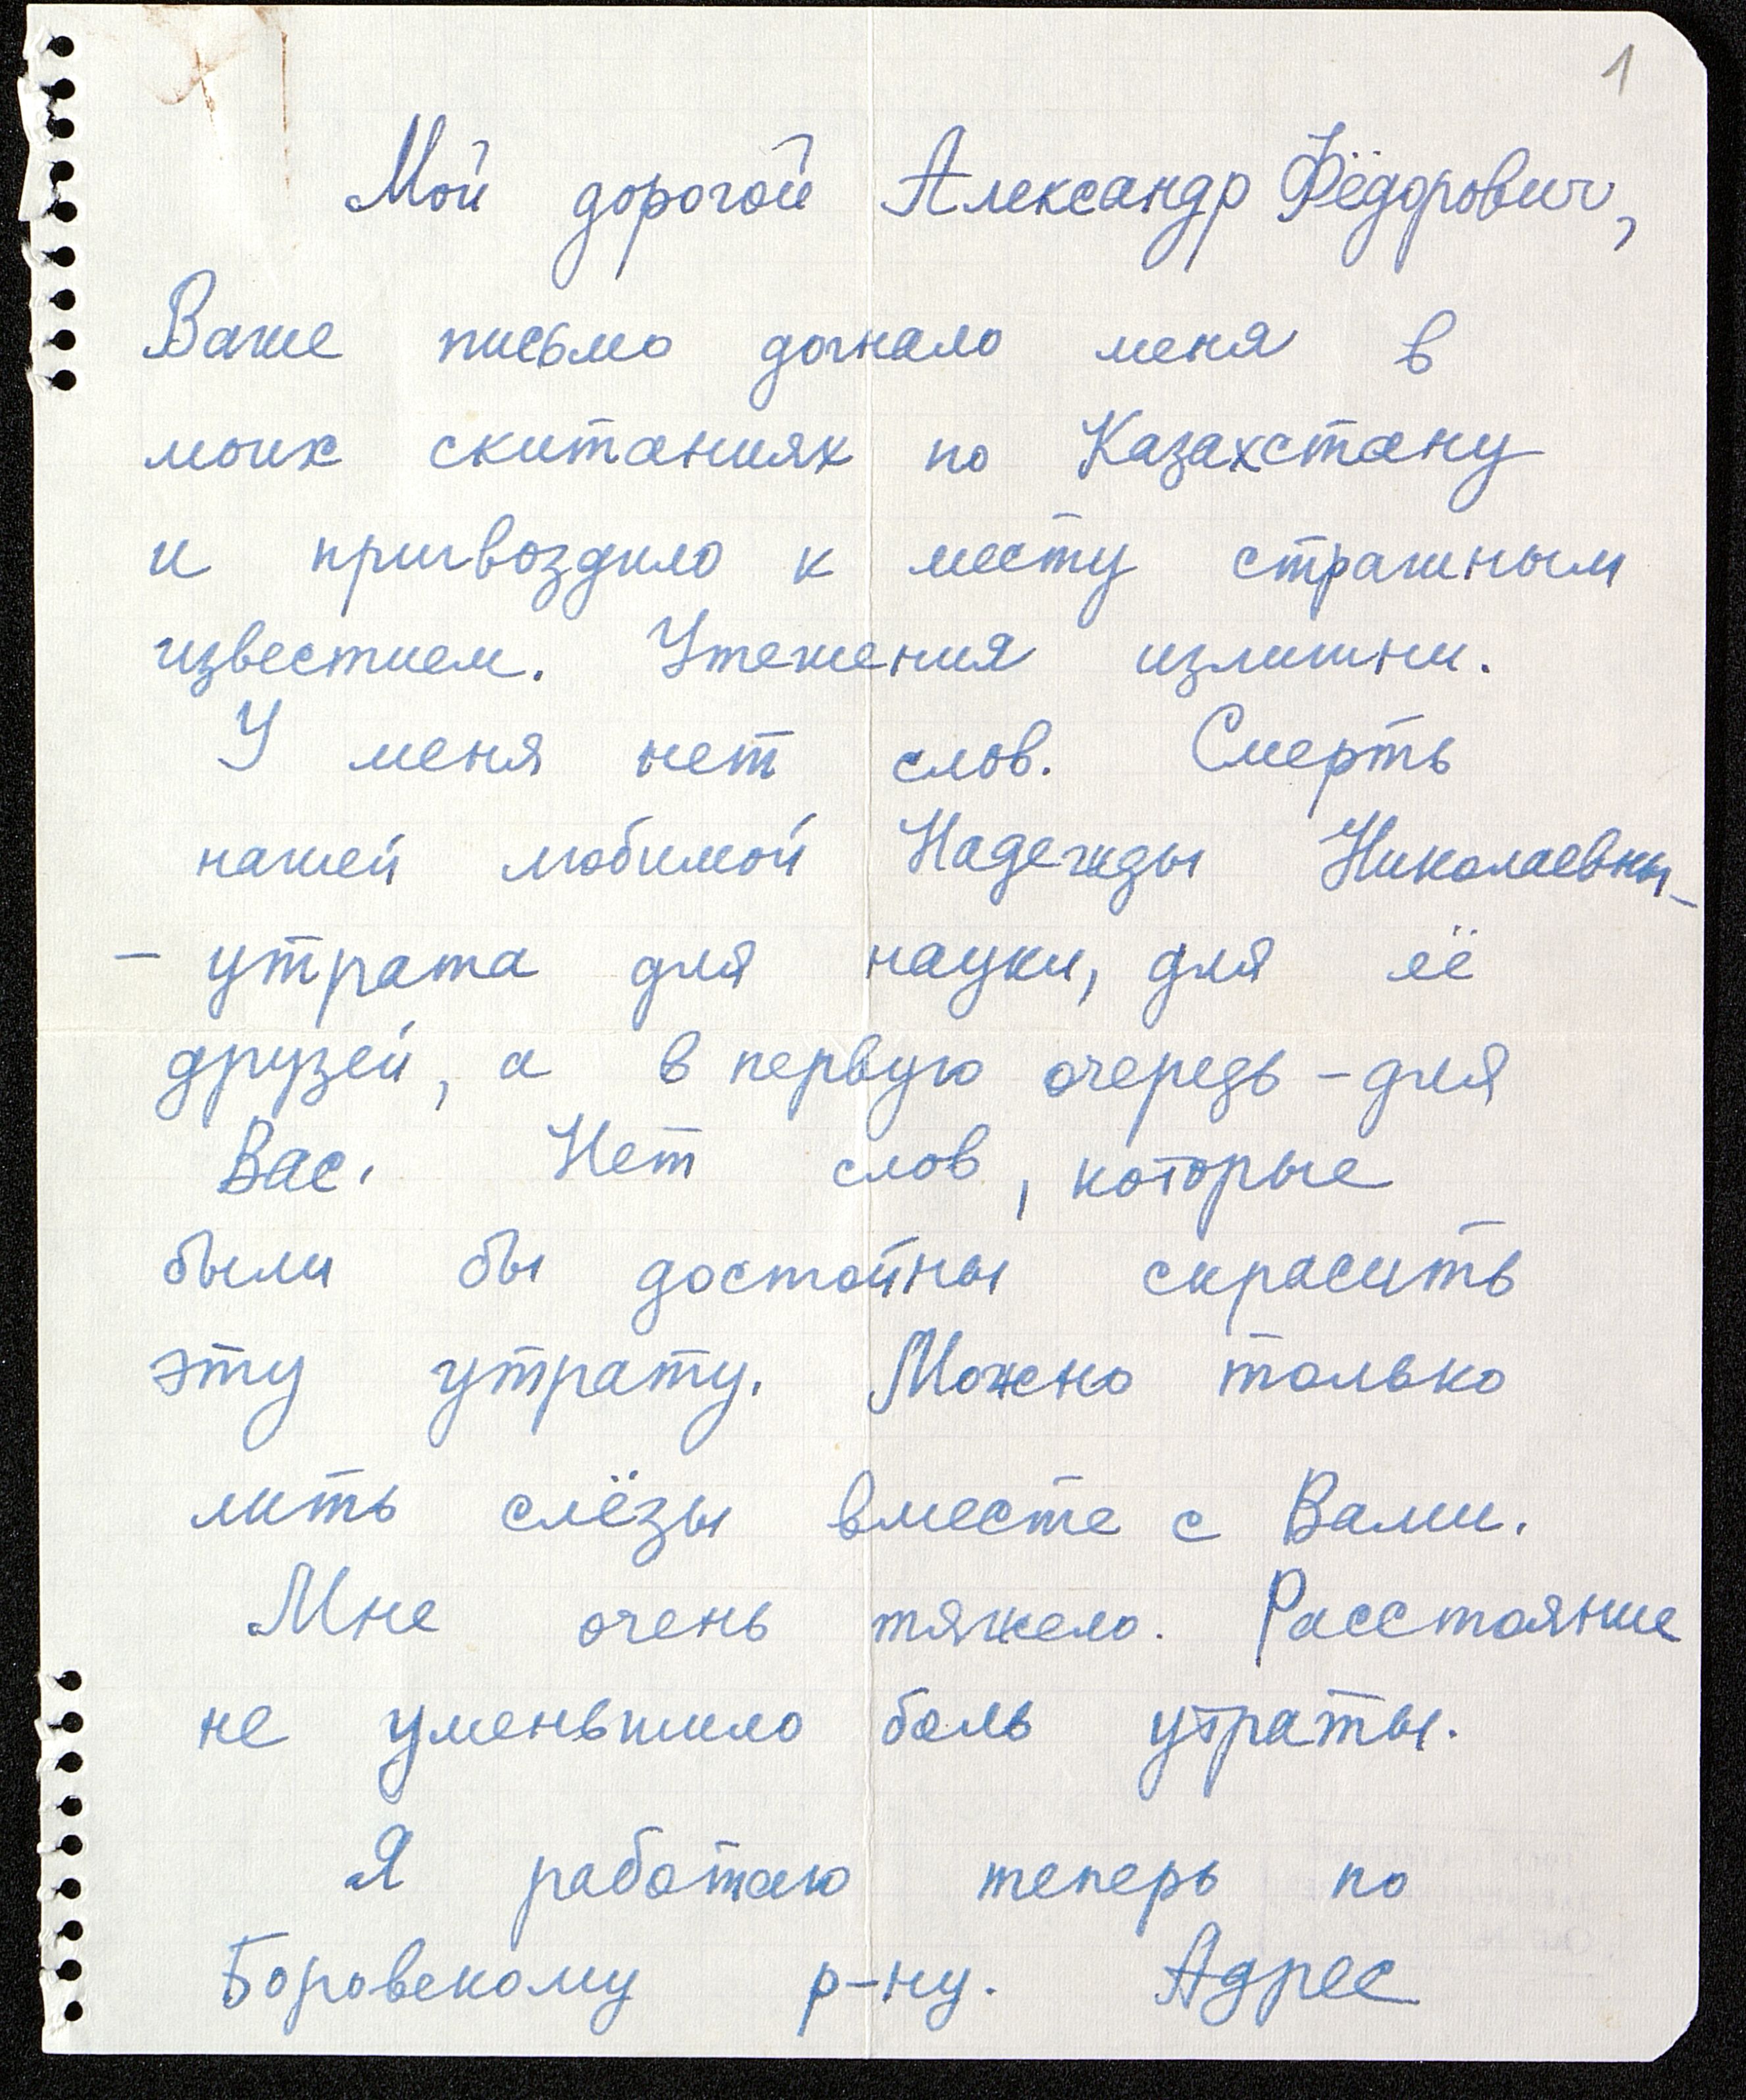 1
Мой дорогой Александр Фёдорович,
Ваше письмо догнало меня в
моих скитаниях по Казахстану
и пригвоздило к месту страшным
известием. Утешения излишни.
У меня нет слов. Смерть
нашей любимой Надежды Николаевны -
- утрата для науки, для её
друзей, а в первую очередь - для
Вас. Нет слов, которые
были бы достойны скрасить
эту утрату. Можно только
лить слёзы вместе с Вами.
Мне очень тяжело. Расстояние
не уменьшило боль утраты.
Я работаю теперь по
Боровскому р-ну. Адрес